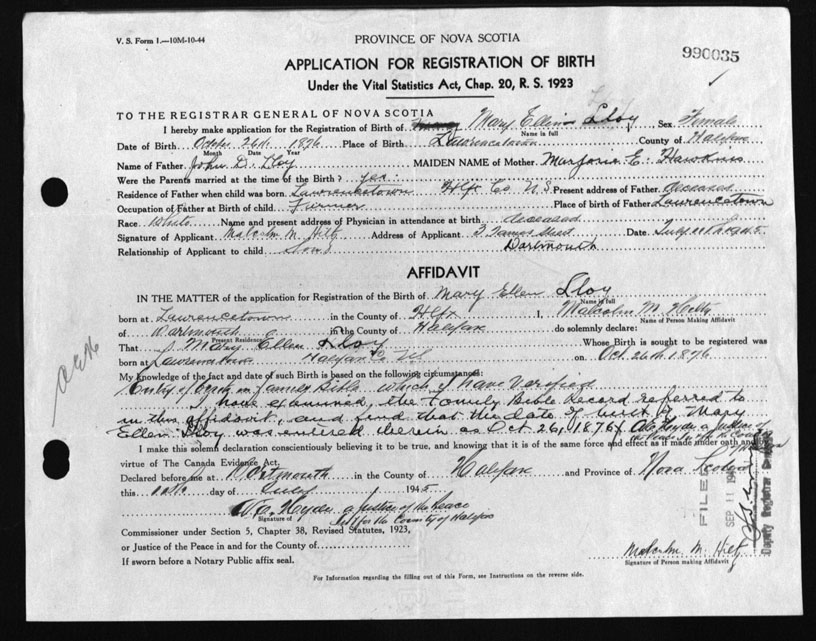 V. S. Form 1.—10M-10-44
PROVINCE OF NOVA SCOTIA
990035
APPLICATION FOR REGISTRATION OF BIRTH
Under the Vital Statistics Act, Chap. 20, R. S. 1923
TO THE REGISTRAR GENERAL OF NOVA SCOTIA
I hereby make application for the Registration of Birth of Mary Ellen Lloy, Sex Female
Name in full
Date of Birth 26th 1876 Place of Birth Lawrencetown County of Halifax
Month Date Year
Name of Father John D. Lloy MAIDEN NAME of Mother Marjorie E. Hawkins
Were the Parents married at the time of the Birth? yes
Residence of Father when child was born Lawrencetown Hfx Co N.S. Present address of Father deceased
Occupation of Father at Birth of child Farmer Place of birth of Father Lawrencetown
Race White Name and present address of Physician in attendance at birth deceased
Signature of Applicant Malcolm M. Hilt Address of Applicant 3 James Street Date
Relationship of Applicant to child Son Dartmouth
AFFIDAVIT
IN THE MATTER of the application for Registration of the Birth of Mary Ellen Lloy
Name in full
born at Lawrencetown in the County of Hfx I, Malcolm M. Hilt
Name of Person Making Affidavit
of Dartmouth in the County of Halifax do solemnly declare:
Present Residence
That Mary Ellen Lloy Whose Birth is sought to be registered was
born at Lawrencetown Halifax Co on Oct. 26th 1876
My knowledge of the fact and date of such Birth is based on the following circumstances:
Entry of Birth in family Bible which I have verified
I have examined, the Family Bible Record referred to
in this affidavit, and find that the date of birth of Mary
Ellen Lloy was entered therein as Oct 26, 1876 a justice of
I make this solemn declaration conscientiously believing it to be true, and knowing that it is of the same force and effect as if made under oath and by
virtue of The Canada Evidence Act.
Declared before me at Dartmouth in the County of Halifax and Province of Nova Scotia
this day of July 1945
a justice of the peace
Signature of
in & for the County of Halifax
Commissioner under Section 5, Chapter 38, Revised Statutes, 1923,
or Justice of the Peace in and for the County of
If sworn before a Notary Public affix seal.
Malcolm M. Hilt
Signature of Person making Affidavit
FILED
SEP 11 1945
Deputy Registrar General
For Information regarding the filling out of this Form, see Instructions on the reverse side.